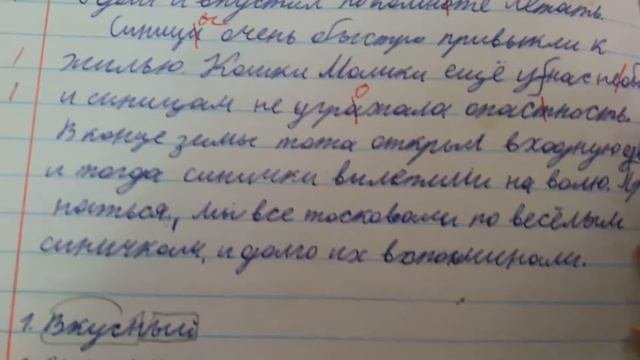 и впустил по комнате летать.
Синицы очень быстро привыкли к
жилью. Кошки Мошки ещё у нас не
и синицам не угрожала опасность.
В конце зимы папа открыл входную
и тогда синички вылетили на волю.
наться, мы все тосковали по весёлым
синичкам, и долго их вспоминали.
1. Вкусный